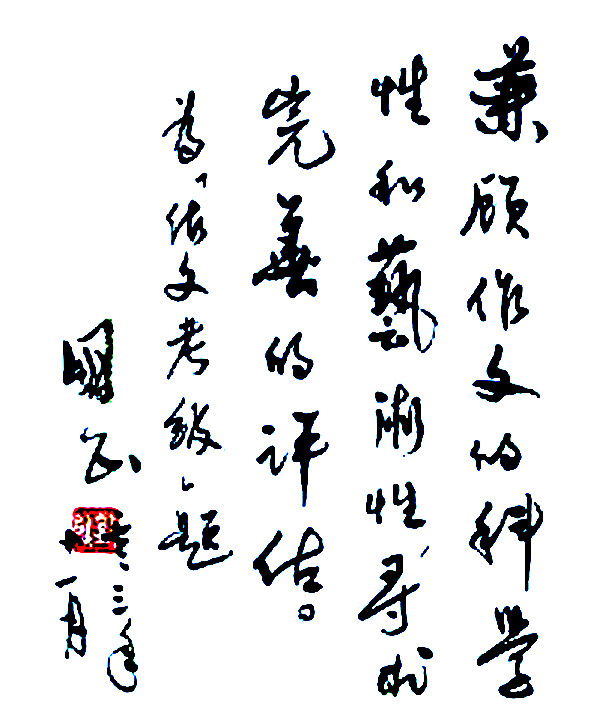 兼顾作文的科學
性和藝術性,寻求
完善的评估。
為「作文考级」题
三年
一月